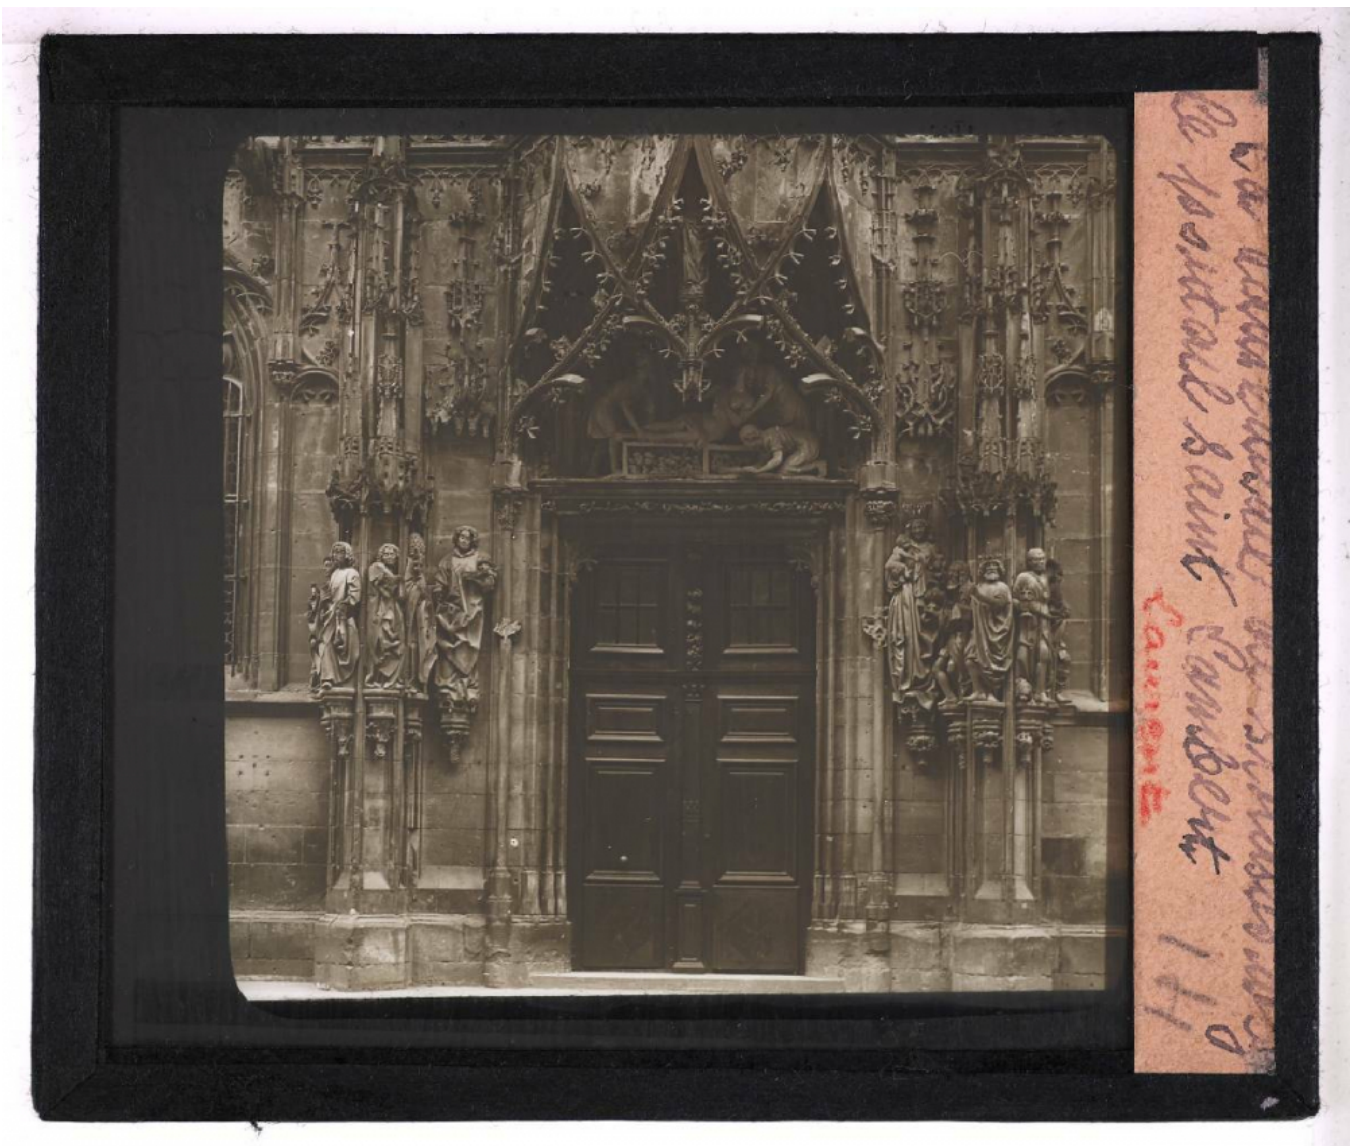 La cathédrale de Strasbourg
Le portail Saint Laurent
Laurent
17